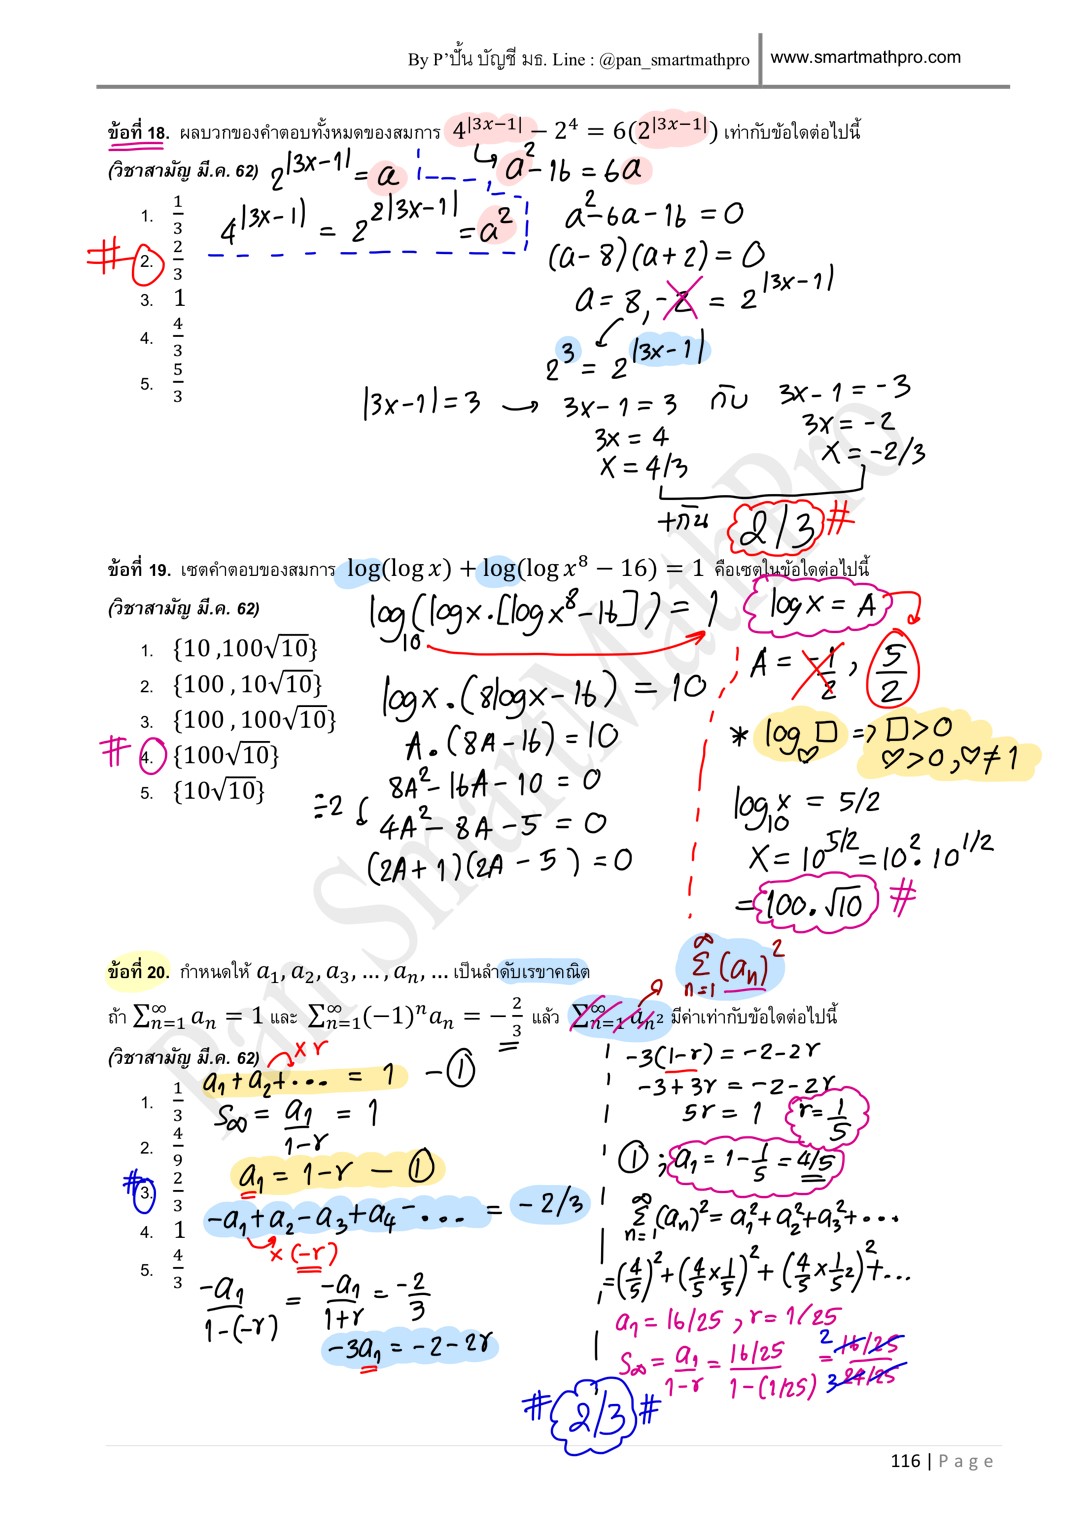 By P'ปั้น บัญชี มธ. Line : @pan_smartmathpro | www.smartmathpro.com
ข้อที่ 18. ผลบวกของคำตอบทั้งหมดของสมการ 4^|3x−1| − 2^4 = 6(2^|3x−1|) เท่ากับข้อใดต่อไปนี้
(วิชาสามัญ มี.ค. 62) 2^|3x-1| = a
a² - 16 = 6a
4^|3x-1| = 2^2|3x-1| = a²
1. 1/3
# 2. 2/3
3. 1
4. 4/3
5. 5/3
a² - 6a - 16 = 0
(a - 8)(a + 2) = 0
a = 8, -2 = 2^|3x-1|
2^3 = 2^|3x-1|
|3x-1| = 3 → 3x - 1 = 3 กับ 3x - 1 = -3
3x = 4 3x = -2
x = 4/3 x = -2/3
+กัน 2/3 #
ข้อที่ 19. เซตคำตอบของสมการ log(log x) + log(log x⁸ − 16) = 1 คือเซตในข้อใดต่อไปนี้
(วิชาสามัญ มี.ค. 62)
1. {10 ,100√10}
2. {100 , 10√10}
3. {100 , 100√10}
# 4. {100√10}
5. {10√10}
log₁₀(log x · [log x⁸ - 16]) = 1
log x · (8 log x - 16) = 10
A · (8A - 16) = 10
8A² - 16A - 10 = 0
÷2 4A² - 8A - 5 = 0
(2A + 1)(2A - 5) = 0
log x = A
A = -1/2, 5/2
* log♡ □ ⇒ □ > 0
♡ > 0, ♡ ≠ 1
log₁₀ x = 5/2
x = 10^5/2 = 10² · 10^1/2
= 100 · √10 #
ข้อที่ 20. กำหนดให้ a₁, a₂, a₃, … , aₙ, … เป็นลำดับเรขาคณิต
∞Σn=1 (aₙ)²
ถ้า ∑∞n=1 aₙ = 1 และ ∑∞n=1(−1)ⁿaₙ = −2/3 แล้ว ∑∞n=1 aₙ² มีค่าเท่ากับข้อใดต่อไปนี้
(วิชาสามัญ มี.ค. 62)
1. 1/3
2. 4/9
# 3. 2/3
4. 1
5. 4/3
× r
a₁ + a₂ + ... = 1 - ①
S∞ = a₁/1-r = 1
a₁ = 1 - r - ①
-a₁ + a₂ - a₃ + a₄ - ... = -2/3
× (-r)
-a₁/1-(-r) = -a₁/1+r = -2/3
-3a₁ = -2 - 2r
-3(1-r) = -2 - 2r
-3 + 3r = -2 - 2r
5r = 1 r = 1/5
① ; a₁ = 1 - 1/5 = 4/5
∞Σn=1 (aₙ)² = a₁² + a₂² + a₃² + ...
= (4/5)² + (4/5 × 1/5)² + (4/5 × 1/5²)² + ...
a₁ = 16/25 , r = 1/25
S∞ = a₁/1-r = 16/25/1-(1/25) = 2 16/25/3 24/25
# 2/3 #
116 | Page
Pan SmartMathPro